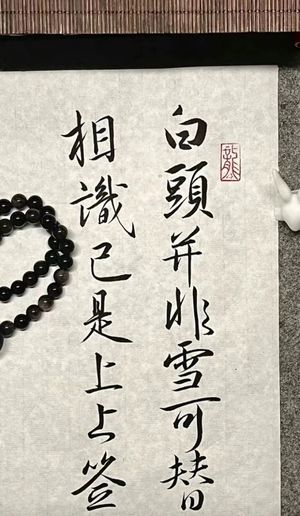 白頭并非雪可替
相識已是上上签